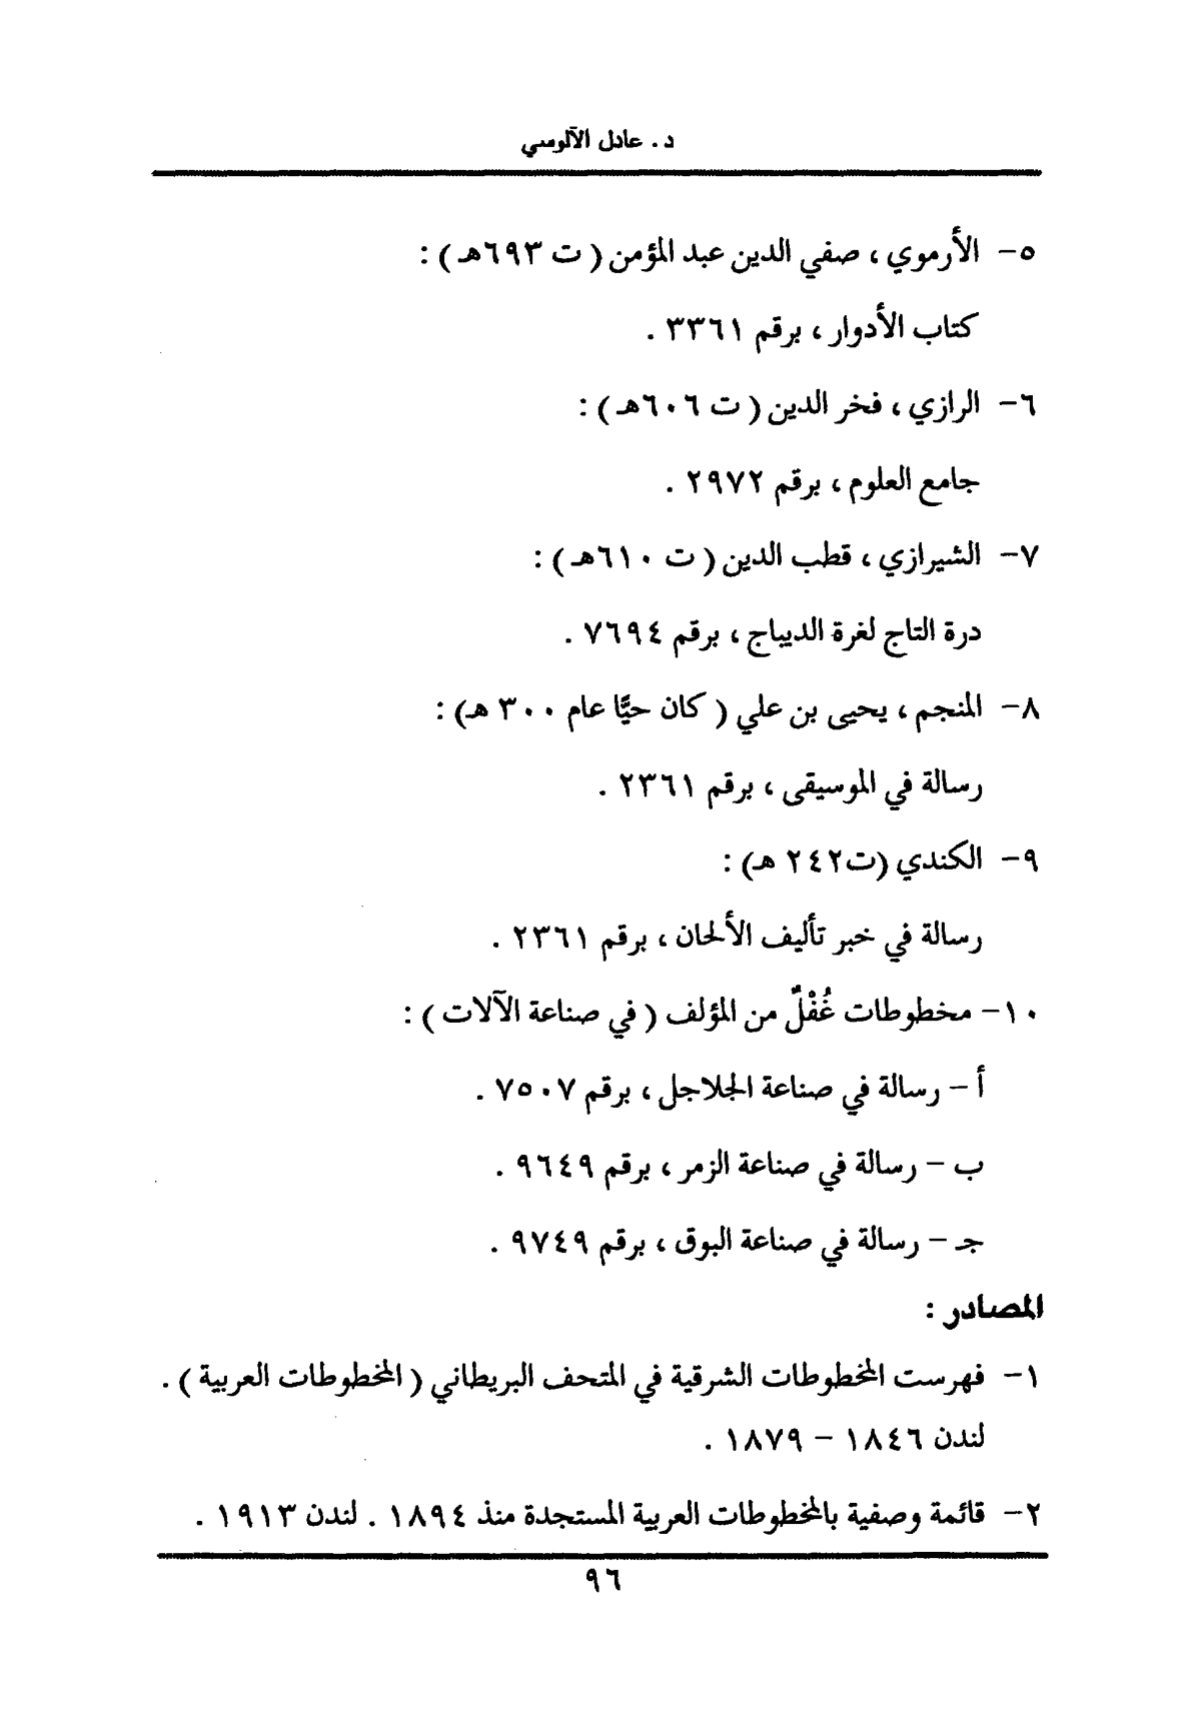 د . عادل الآلوسي
٥- الأرموي ، صفي الدين عبد المؤمن ( ت ٦٩٣هـ ) :
كتاب الأدوار ، برقم ٣٣٦١ .
٦- الرازي ، فخر الدين ( ت ٦٠٦هـ ) :
جامع العلوم ، برقم ٢٩٧٢ .
٧- الشيرازي ، قطب الدين ( ت ٦١٠هـ ) :
درة التاج لغرة الديباج ، برقم ٧٦٩٤ .
٨- المنجم ، يحيى بن علي ( كان حيًّا عام ٣٠٠ هـ) :
رسالة في الموسيقى ، برقم ٢٣٦١ .
٩- الكندي (ت٢٤٢ هـ) :
رسالة في خبر تأليف الألحان ، برقم ٢٣٦١ .
١٠- مخطوطات غُفْلٌ من المؤلف ( في صناعة الآلات ) :
أ - رسالة في صناعة الجلاجل ، برقم ٧٥٠٧ .
ب - رسالة في صناعة الزمر ، برقم ٩٦٤٩ .
جـ - رسالة في صناعة البوق ، برقم ٩٧٤٩ .
المصادر :
١- فهرست المخطوطات الشرقية في المتحف البريطاني ( المخطوطات العربية ) .
لندن ١٨٤٦ - ١٨٧٩ .
٢- قائمة وصفية بالمخطوطات العربية المستجدة منذ ١٨٩٤ . لندن ١٩١٣ .
٩٦